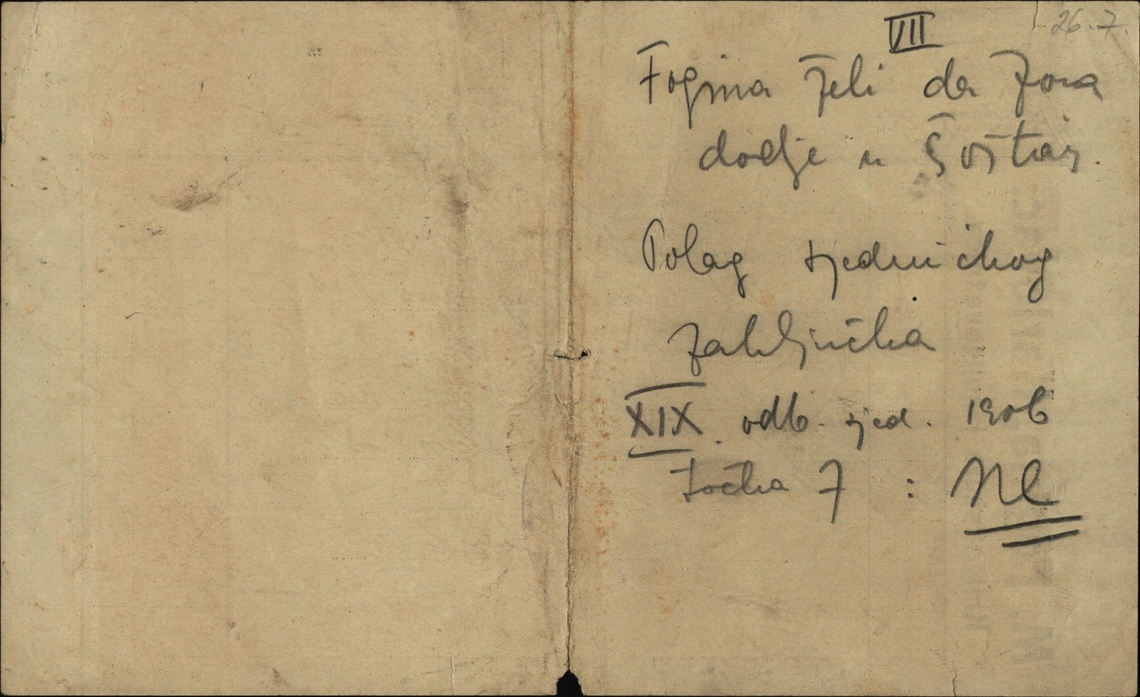 26.7.
VII
Fogina želi da Zora
dodje u Šoštanj.
Polag sjedničkog
zaključka
XIX. odb. sjed. 1906
točka 7 : Ne